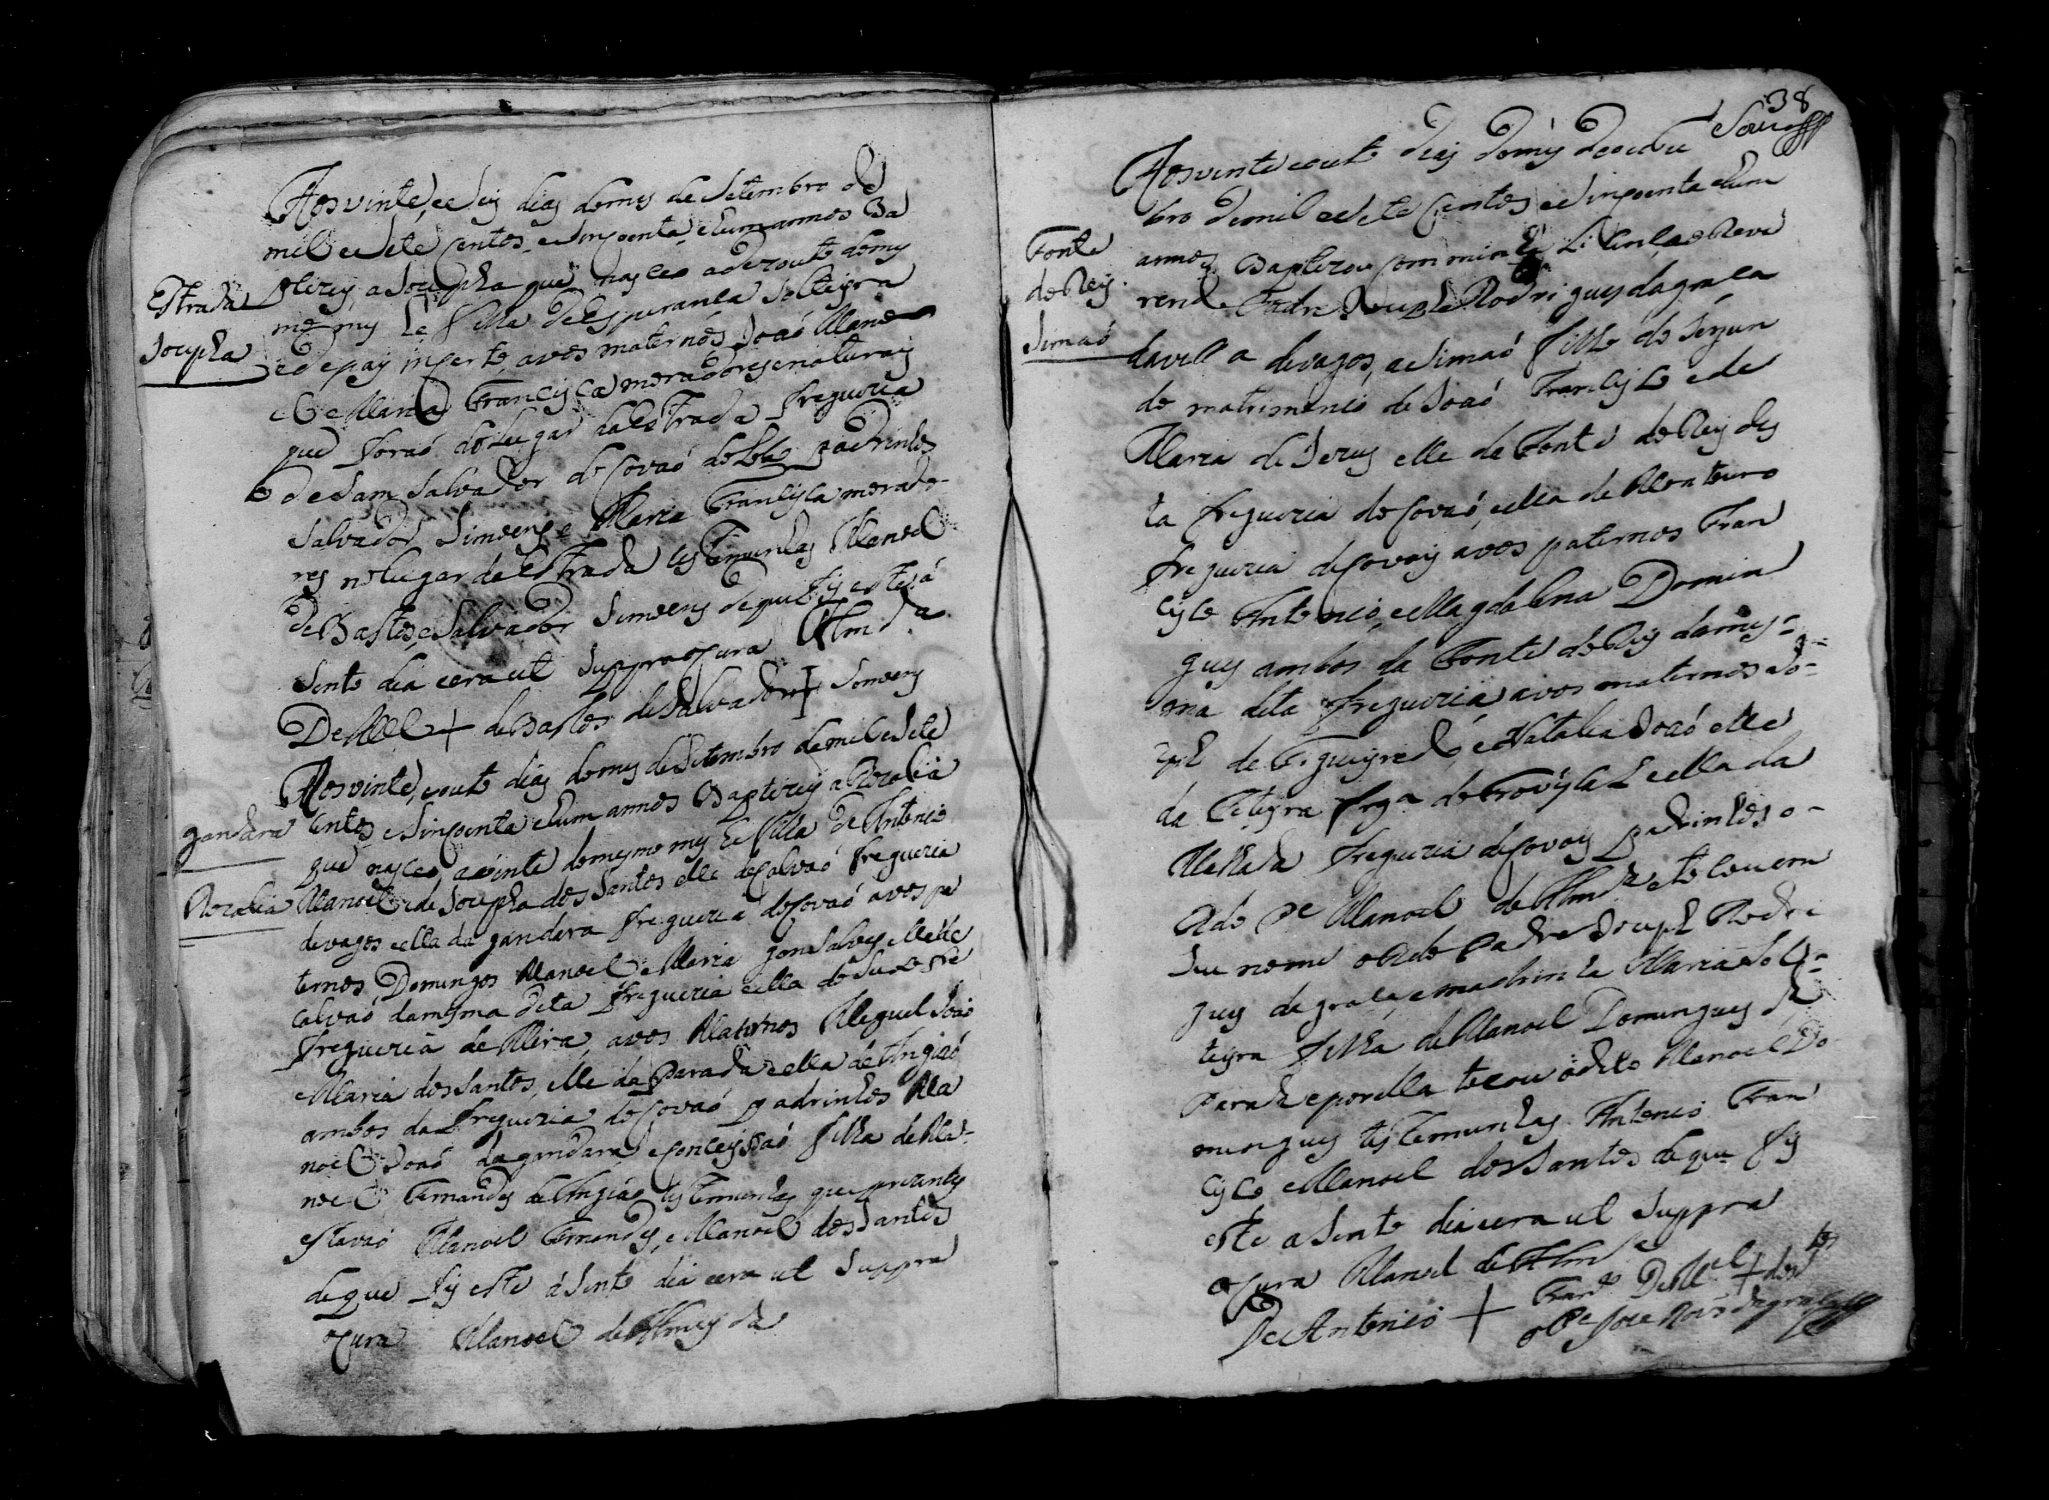 Estrada
Josepha
Aos vinte, e seis dias do mes de Setembro de
mil e sete centos, e sinpoenta, e hum annos Ba
ptizey, a Josepha que nasceo a dezouto do mes
mo mes he filha de Esperanca Solteyra
e de pay inserto, avos maternos Joaõ Mano
el e Maria Francisca moradores e naturays
que foraõ do Lugar da Estrada freguezia
de Sam Salvador do Covaõ do Lobo padrinhos
Salvador Simoens e Maria Francisca morado-
res no lugar da Estrada testemunhas Manoel
de Bastos, e Salvador Simoens de que fis este a
sento dia e era ut suppra o Cura Almda
De Mel + de Bastos de Salvador + Simoens
gandara
Rozalia
Aos vinte, e outo dias do mes de Setembro de mil e sete
centos e sinpoenta e hum annos Baptizey a Rozalia
que nasceo, a vinte do mesmo mes he filha de Antonio
Manoel e de Josepha dos Santos elle de Calvaõ freguezia
de vagos e ella da gandara freguezia do Covaõ avos pa
ternos Domingos Manoel e Maria gonsalves elle de
Calvaõ da mesma dita freguezia e ella do
freguezia de Mira, avos Maternos Miguel Joaõ
e Maria dos Santos, elle da Parada e ella de Angiaõ
ambos da freguezia do Covaõ padrinhos Ma
noel Joaõ da gandara, e Conceyssaõ filha de Ma-
noel Fernandes de Angiaõ testemunhas que prezentes
estavaõ Manoel Fernandes, e Manoel dos Santos
de que fis este asento dia e era ut suppra
o Cura Manoel de Almeyda
38
Fonte
do Rey
Simaõ
Aos vinte e outo dias do mes de outu
bro de mil e sete centos, e sinpoenta e hum
annos Baptizou com minha Licença o Reve
rendo Padre Joseph Rodrigues da graca
da villa de vagos, a Simaõ filho do segun
do matrimonio de Joaõ Francisco e de
Maria de Jezus elle da Fonte do Rey des
ta freguezia do Covaõ, e ella de Montouro
freguezia de Covoes avos paternos Fran
cisco Antonio, e Magdalena Domin
gues ambos da Fonte do Rey da mes-
ma dita freguezia avos maternos Jo-
zeph de Figueyredo, e Natalia Joaõ elle
da frega de e ella da
freguezia de Covoes padrinhos o
Rdo Pe Manoel de Almda e tocou em
seu nome o Rdo Padre Joseph Rodri
gues da graca, e madrinha Maria Sol-
teyra filha de Manoel Domingues da
Parada e por ella tocou o dito Manoel Do
mingues testemunhas Antonio Fran
cisco e Manoel dos Santos de que fis
este asento dia e era ut suppra
o Cura Manoel de Almda
De Antonio + Franco De Mel + dos Stos
o Pe Joze Roiz da graca